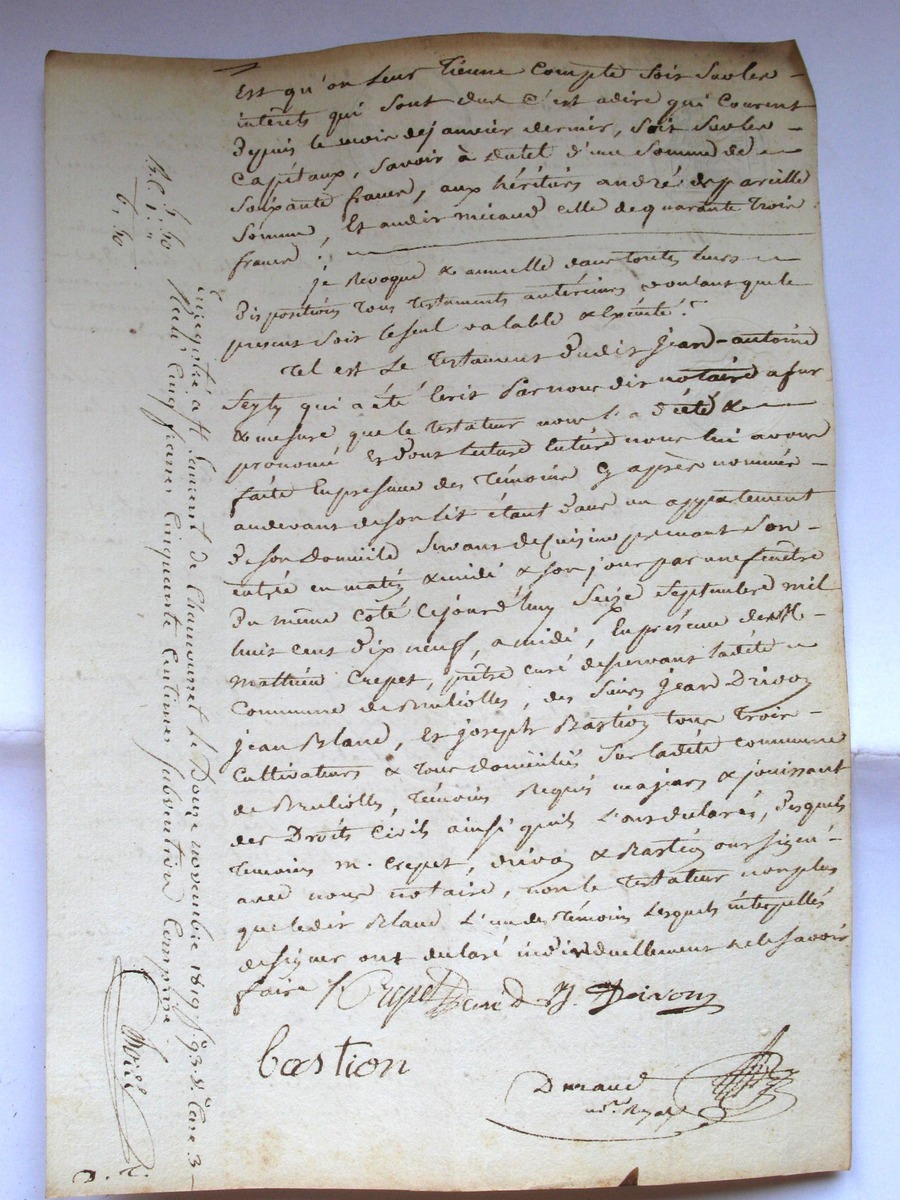 Est qu'on leur tienne Compte soit sur les
interêts qui sont dus c'est adire qui Courent
depuis le mois de janvier dernier, soit sur les
Capitaux, Savoir à dutel d'une somme de
Soixante francs, aux héritiers andré de pareille
somme, Et audit micaud celle de quarante Trois
francs;
je Revoque & annulle dans toutes leurs
dispositions Tous Testaments antérieurs voulant que le
present soit le seul valable & Exécuté.
Tel est Le Testament dudit Jean-antoine
qui a été Ecrit Par nous dit notaire a fur
& mesure que le Testateur nous l'a dicté &
prononcé Et dont Lecture Entiere nous lui avons
faite En presence des Témoins Cy après nommés
au devant de son lit étant dans un appartement
de son Domicile servant de cuisine prenant son
entrée en matin & midi & son jour par une fenêtre
du même coté Cejourd'huy Seize Septembre mil
huit cent dix neuf, a midi, En présence de M
Mathieu Crepet, prêtre curé desservant ladite
Commune de Brullioles, des Sieurs Jean Drivon
jean Bland, Et joseph Bastion tous Trois
Cultivateurs & Tous domiciliés sur ladite commune
de Brullioles, Témoins Requis majeurs & jouissant
des Droits Civils ainsi qu'ils L'ont declaré, desquels
Temoins m. Crepet, drivon & Bastion ont signé
avec nous notaire, non le Testateur non plus
que ledit Bland L'un des Témoins Lesquels interpellés
de signer ont declaré individuellement ne le savoir
faire
Crepet J. Drivon
bastion
Durand
not.re Royal
Enregistré a St Laurent de Chamousset le Douze novembre 1819 f° 93 v° Case 3
Reçu Cinq francs Cinquante Centimes subvention Comprise